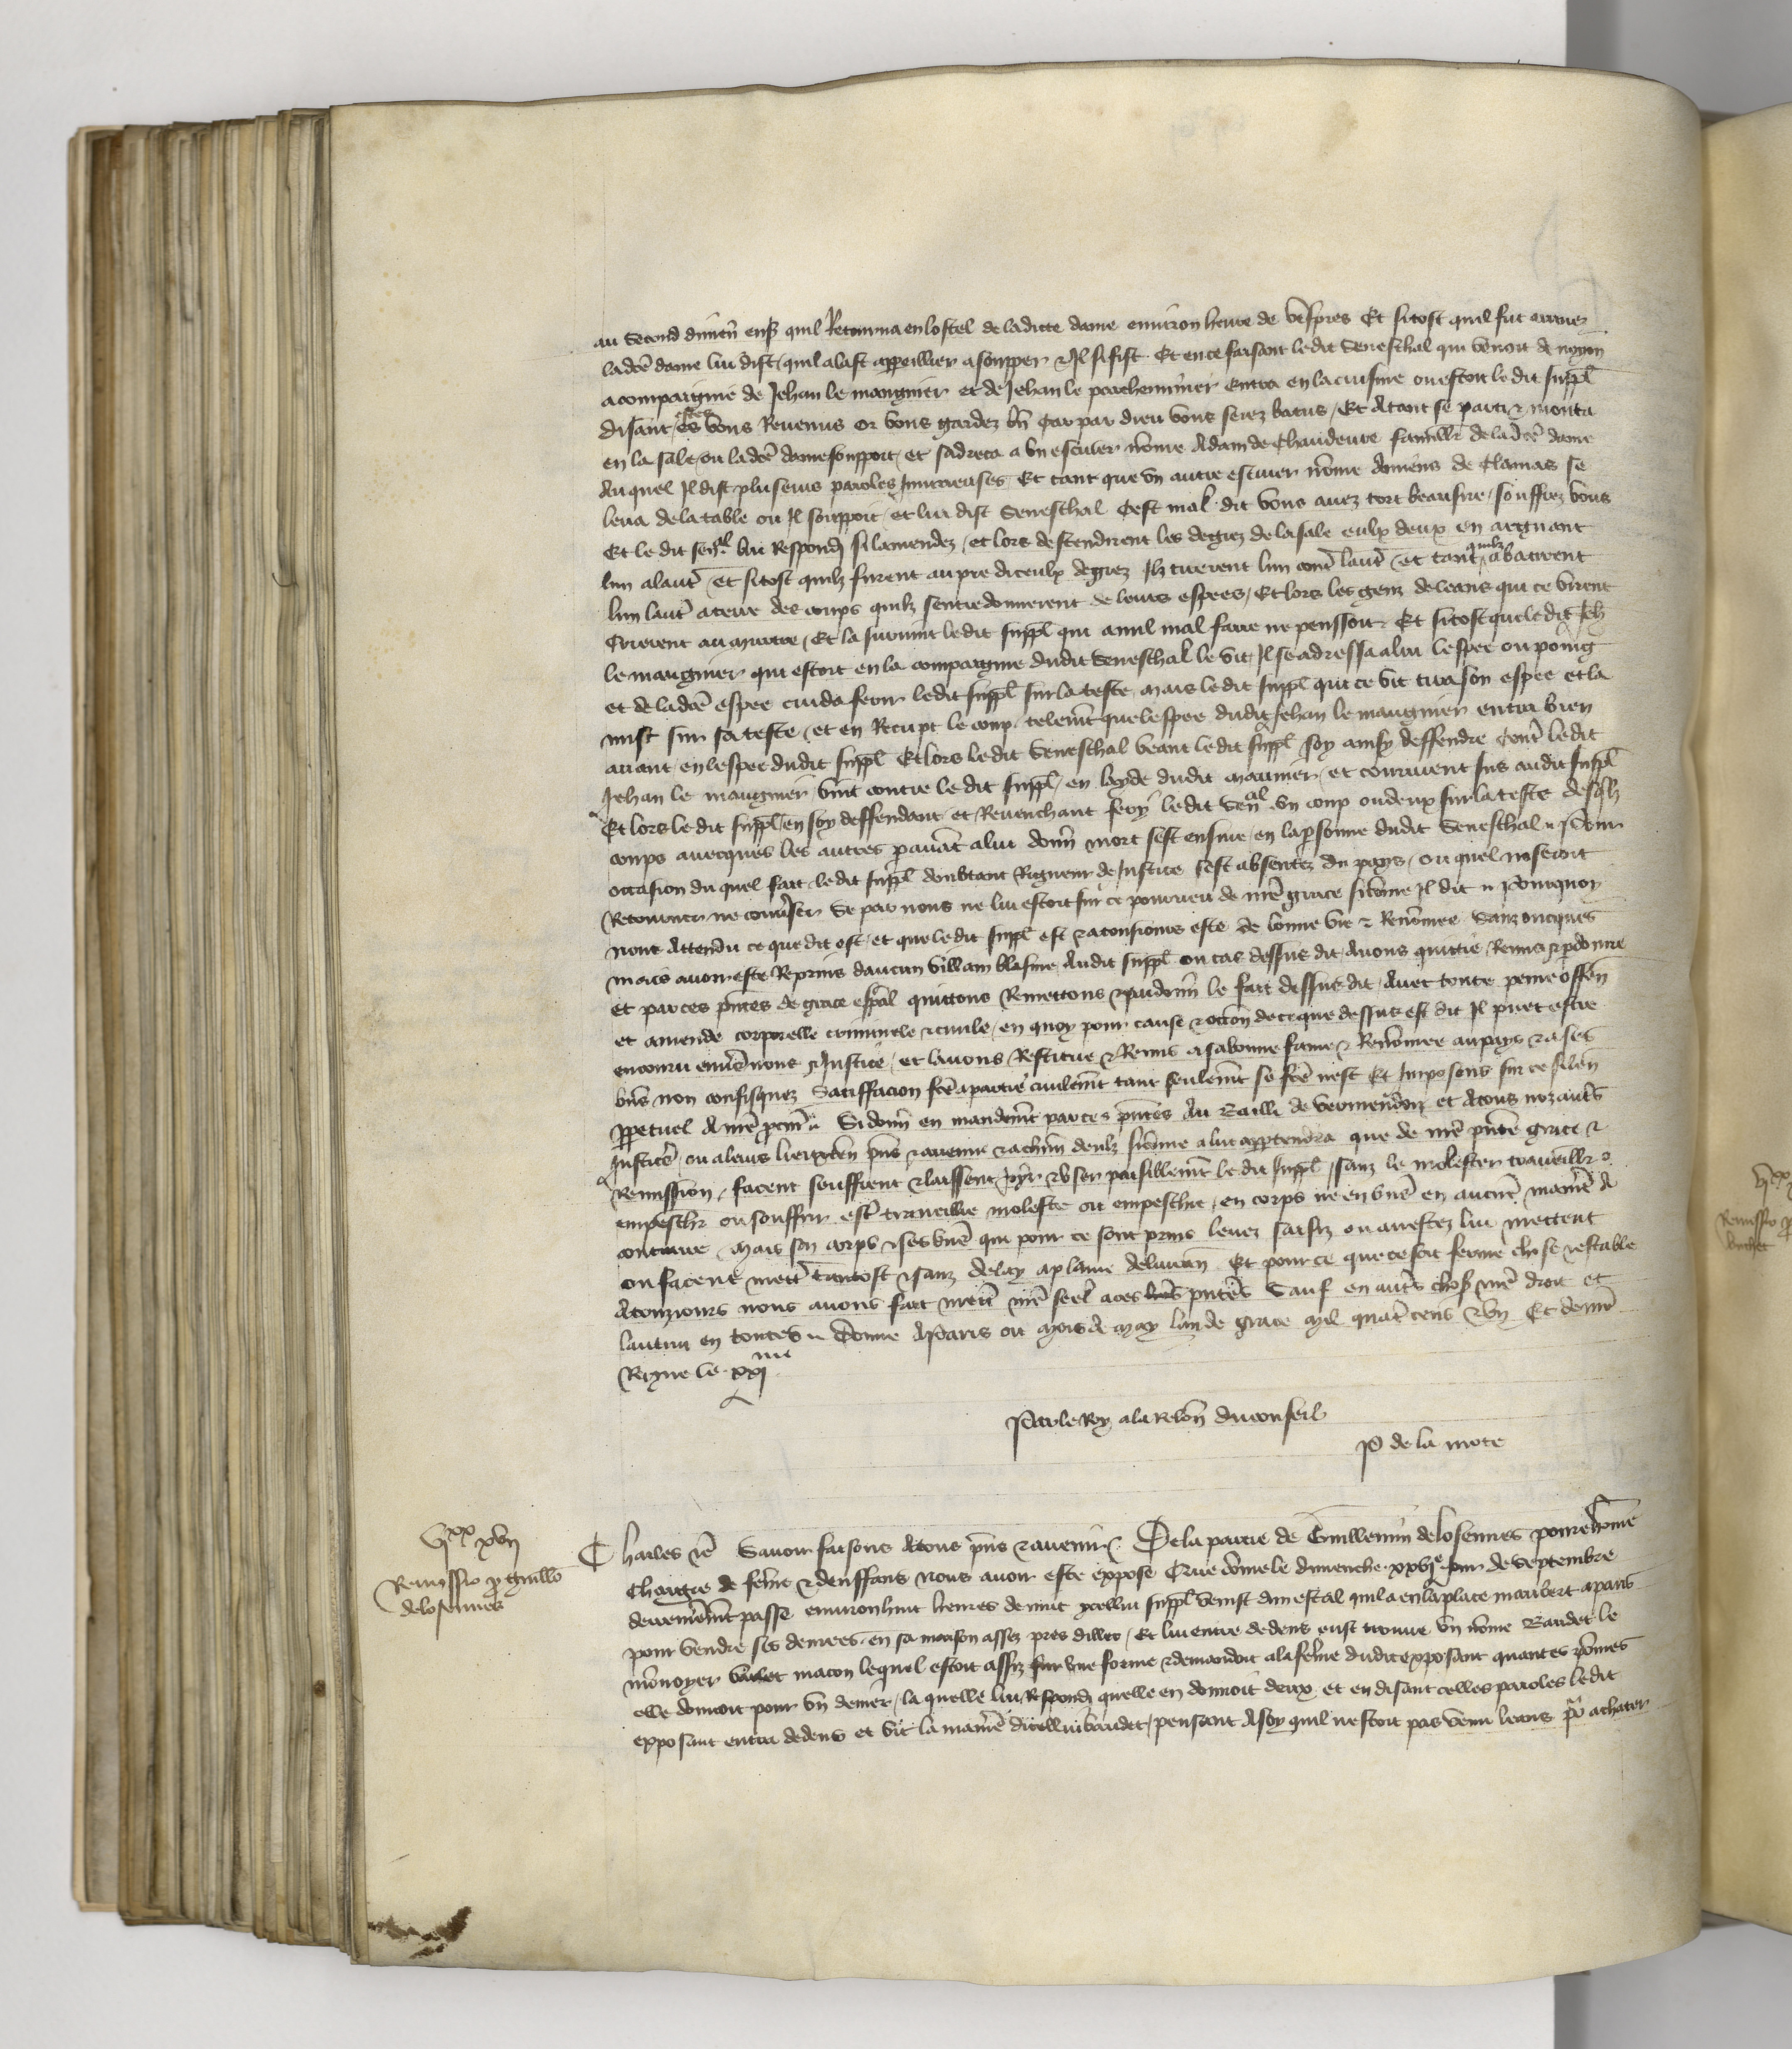 au second dimen ensz quil Retourna en lostel de ladicte dame environ heure de vespres Et si tost quil fut arrivez
ladce dame lui dist quil alast appeillier a soupper & Il si fist Et en ce faisant ledit Seneschal qui venoit de noyon
acompaignie de Jehan le maugnier et de Jehan le parcheminier Entra en la cuisine ou estoit ledit suppl
disant estes vous Revenus or vous gardez bn Car par dieu vous serez batus Et Atant se parti & monta
en la sale ou ladce dame souppoit et sadreca a un escuier nome Adam de Chauderue familler de ladce dame
Auquel Il dist pluseurs paroles Iniurieuses Et tant que un autre escuier nome Amiens de Clamas se
leva de la table ou Il souppoit et lui dist Seneschal Cest mal dit vous avez tort beausire souffrez vous
Et le dit senal lui Respondi si lamendez et lors descendirent les degrez de la sale eulx deux en arguant
lun a laut et si tost quilz furent au pie diceulx degrez Ilz tirerent lun cont laut et tant quilz abatirent
lun laut a terre des coups quilz sentredonnerent de leurs espees Et lors les gens de leans qui ce virent
Crierent au murtre Et la survint ledit suppl qui a nul mal faire ne penssoit Et si tost que le dit Jeh
le maugnier qui estoit en la compaignie dudit Seneschal le vit Il se adressa a lui lespee ou poing
et de ladce espee cuida ferir ledit suppl sur la teste mais ledit suppl qui ce vit tira son espee et la
mist sur sa teste et en Recupt le coup telemt que lespee dudit Jehan le maugnier entra bien
avant en lespee dudit suppl Et lors ledit Seneschal veant ledit suppl soy ainsy deffendre Contre ledit
Jehan le maugnier vint contre le dit suppl en layde dudit maunier et coururent sus audit suppl
Et lors le dit suppl en soy deffendant et Revenchant fery ledit Senal un coup ou deux sur la teste desqlz
coups avecques les autres pavat a lui donn mort sest ensuie en la psonne dudit Seneschal Pour
occasion du quel fait ledit suppl doubtant Rigueur de Justice sest absentez du pays ou quel noseroit
Retourner ne converser Se par nous ne lui estoit sur ce pourveu de nre grace si come Il dit Pourquoy
nous Attendu ce que dit est et que ledit suppl est & a tousiours este de bonne vie & Renomee Sanz oncques
mais avoir este Reprins daucun villain blasme Audit suppl ou cas dessus dit Avons quittie Remis & pdonne
Et par ces pntes de grace espal quittons Remettons & pardonn le fait dessus dit Avec toute peine offen
et amende corporelle criminele & civile en quoy pour cause & occon de ce que dessus est dit Il puet estre
encouru envers nous & Justice et lavons Restitue & Remis a sa bonne fame & Renomee au pays & a ses
bns non confisquez Satiffacion fce a partie civilemt tant seulemt se fce nest Et Imposons sur ce silen
ppetuel A nre pcur Si donn en mandemt par ces pntes Au Bailli de vermendoiz et A tous noz auts
Justic ou a leurs lieuxten pns & avenir & a chun deulx sicomme a lui apptendra que de nre pnte grace &
Remission facent seuffrent & laissent Joyr & user paisiblemt le dit suppl sanz le molester travailler
empescher ou souffrir est travaillie moleste ou empeschie en corps ne en bns en aucune manie A
contraire Mais son corps & ses bns qui pour ce sont prins levez saisiz ou arrestez lui mettent
ou facent mett tantost & sanz delay a plaine delivran Et pour ce que ce soit ferme chose & estable
A tousiours nous avons fait mett nre seel a ces pntes Sauf en auts choss nre droit et
lautrui en toutes Donne A Paris ou mois de may lan de grace mil quat cens & un Et de nre
Regne le xxj me
Par le Roy a la relon du conseil
P de la mote
vixx xvii
Remissio p Guillo
de losennes
Charles &c Savoir faisons A tous pns & avenir De la partie de Guillemin de losennes povre home
Chargie de feme & denffans nous avoir este expose Que come le dimenche xxvje jour de septembre
derrenieremt passe environ huit heures de nuit ycellui suppl venist dun estal quil a en la place maubert a paris
pour vendre ses denrees en sa maison assez pres dillec Et lui entre dedens eust trouve un nome Baudet le
monoyer varlet macon lequel estoit assiz sur une forme & demandoit a la feme dudit exposant quantes pomes
elle donnoit pour un denier la quelle lui Respondi quelle en donnoit deux et en disant celles paroles ledit
exposant entra dedens et vit la maniere dicellui baudet pensant A soy quil nestoit pas venu leans pour achater